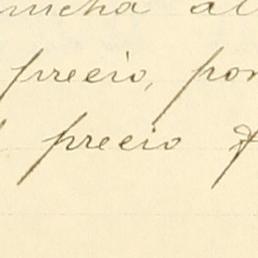 mucha al
precio, por
precio